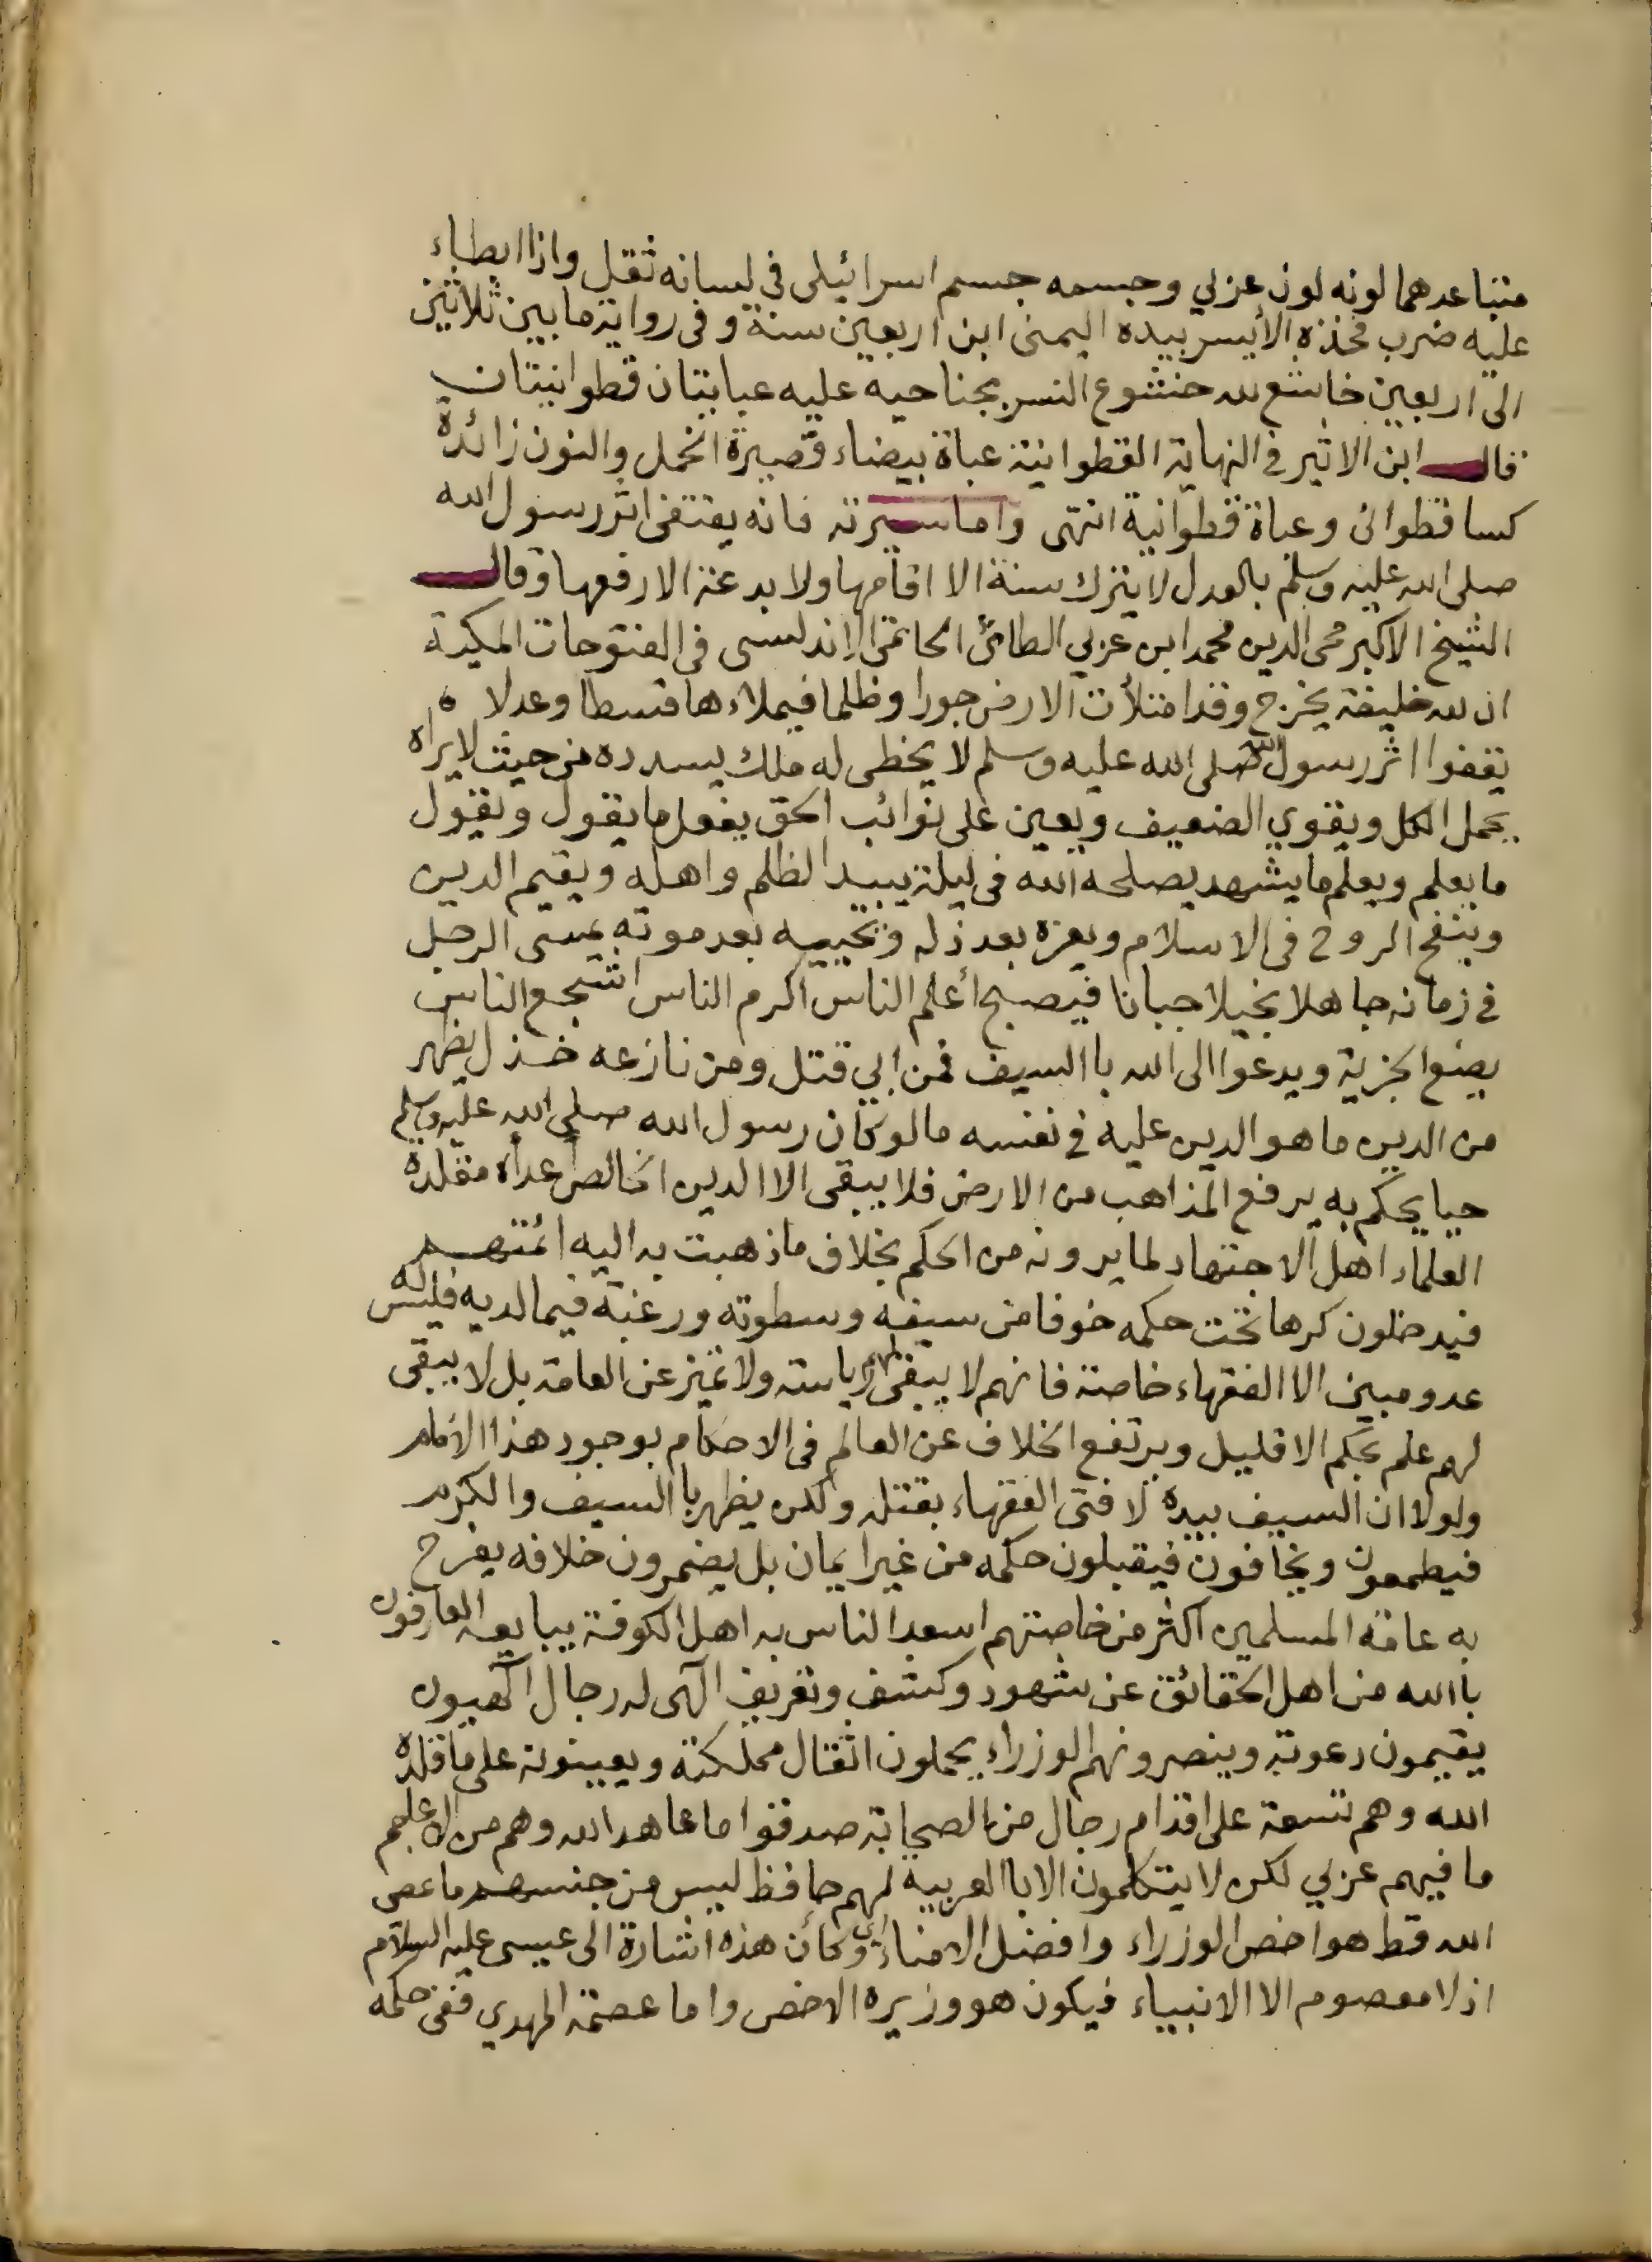 متباعدهما لونه لون عربي وجسمه جسم اسرائيلى فى لسانه ثقل واذا ابطاء
عليه ضرب فخذه الأيسر بيده اليمنى ابن اربعين سنة وفى رواية ما بين ثلاثين
الى اربعين خاشع لله خشوع النسر بجناحيه عليه عبايتان قطوانيتان
قال ابن الاثير فى النهاية القطوانية عباة بيضاء قصيرة الخمل والنون زائدة
كسا قطوانى وعباة قطوانية انتهى واما سيرته فانه يقتفى اثر رسول الله
صلى الله عليه وسلم بالعدل لا يترك سنة الا اقامها ولا بدعة الا رفعها وقال
الشيخ الاكبر محى الدين محمد ابن عربي الطائى الحاتمى الاندلسى فى الفتوحات المكية
ان لله خليفة يخرج وقد امتلأت الارض جورا وظلما فيملاءها قسطا وعدلا
يقفوا اثر رسول الله صلى الله عليه وسلم لا يخطى له ملك يسدده من حيث لا يراه
يحمل الكل ويقوي الضعيف ويعين على نوائب الحق يفعل ما يقول ويقول
ما يعلم ويعلم ما يشهد يصلحه الله فى ليلة يبيد الظلم واهله ويقيم الدين
وينفخ الروح فى الاسلام ويعزه بعد ذله ويحييه بعد موته يمسى الرجل
فى زمانه جاهلا بخيلا جبانا فيصبح أعلم الناس اكرم الناس اشجع الناس
يضع الجزية ويدعوا الى الله باالسيف فمن ابي قتل ومن نازعه خذل يظهر
من الدين ما هو الدين عليه فى نفسه ما لو كان رسول الله صلى الله عليه وسلم
حيا يحكم به يرفع المذاهب من الارض فلا يبقى الا الدين الخالص أعداه مقلدة
العلماء اهل الاجتهاد لما يرونه من الحكم بخلاف ما ذهبت به اليه ائمتهم
فيدخلون كرها تحت حكمه خوفا من سيفه وسطوته ورغبة فيما لديه فليس له
عدو مبين الا الفقهاء خاصة فانهم لا يبقى لهم رياسة ولا تميز عن العامة بل لا يبقى
لهم علم بحكم الا قليل ويرتفع الخلاف عن العالم فى الاحكام بوجود هذا الامام
ولولا ان السيف بيده لافتى الفقهاء بقتله ولكن يظهر باالسيف والكرم
فيطمعون ويخافون فيقبلون حكمه من غير ايمان بل يضمرون خلافه يفرح
به عامة المسلمين اكثر من خاصتهم اسعد الناس به اهل الكوفة يبايعه العارفون
باالله من اهل الحقائق عن شهود وكشف وتعريف آلهى له رجال آلهيون
يقيمون دعوته وينصرونه هم الوزراء يحملون اثقال مملكته ويعينونه على ما قلده
الله وهم تسعة على اقدام رجال من الصحابة صدقوا ما عاهد الله وهم من الاعاجم
ما فيهم عربي لكن لا يتكلمون الا باالعربية لهم حافظ ليس من جنسهم ما عصى
الله قط هو اخص الوزراء وافضل الامناء وكأن هذه اشارة الى عيسى عليه السلام
اذ لا معصوم الا الانبياء فيكون هو وزيره الاخص واما عصمة المهدي ففى حكمه